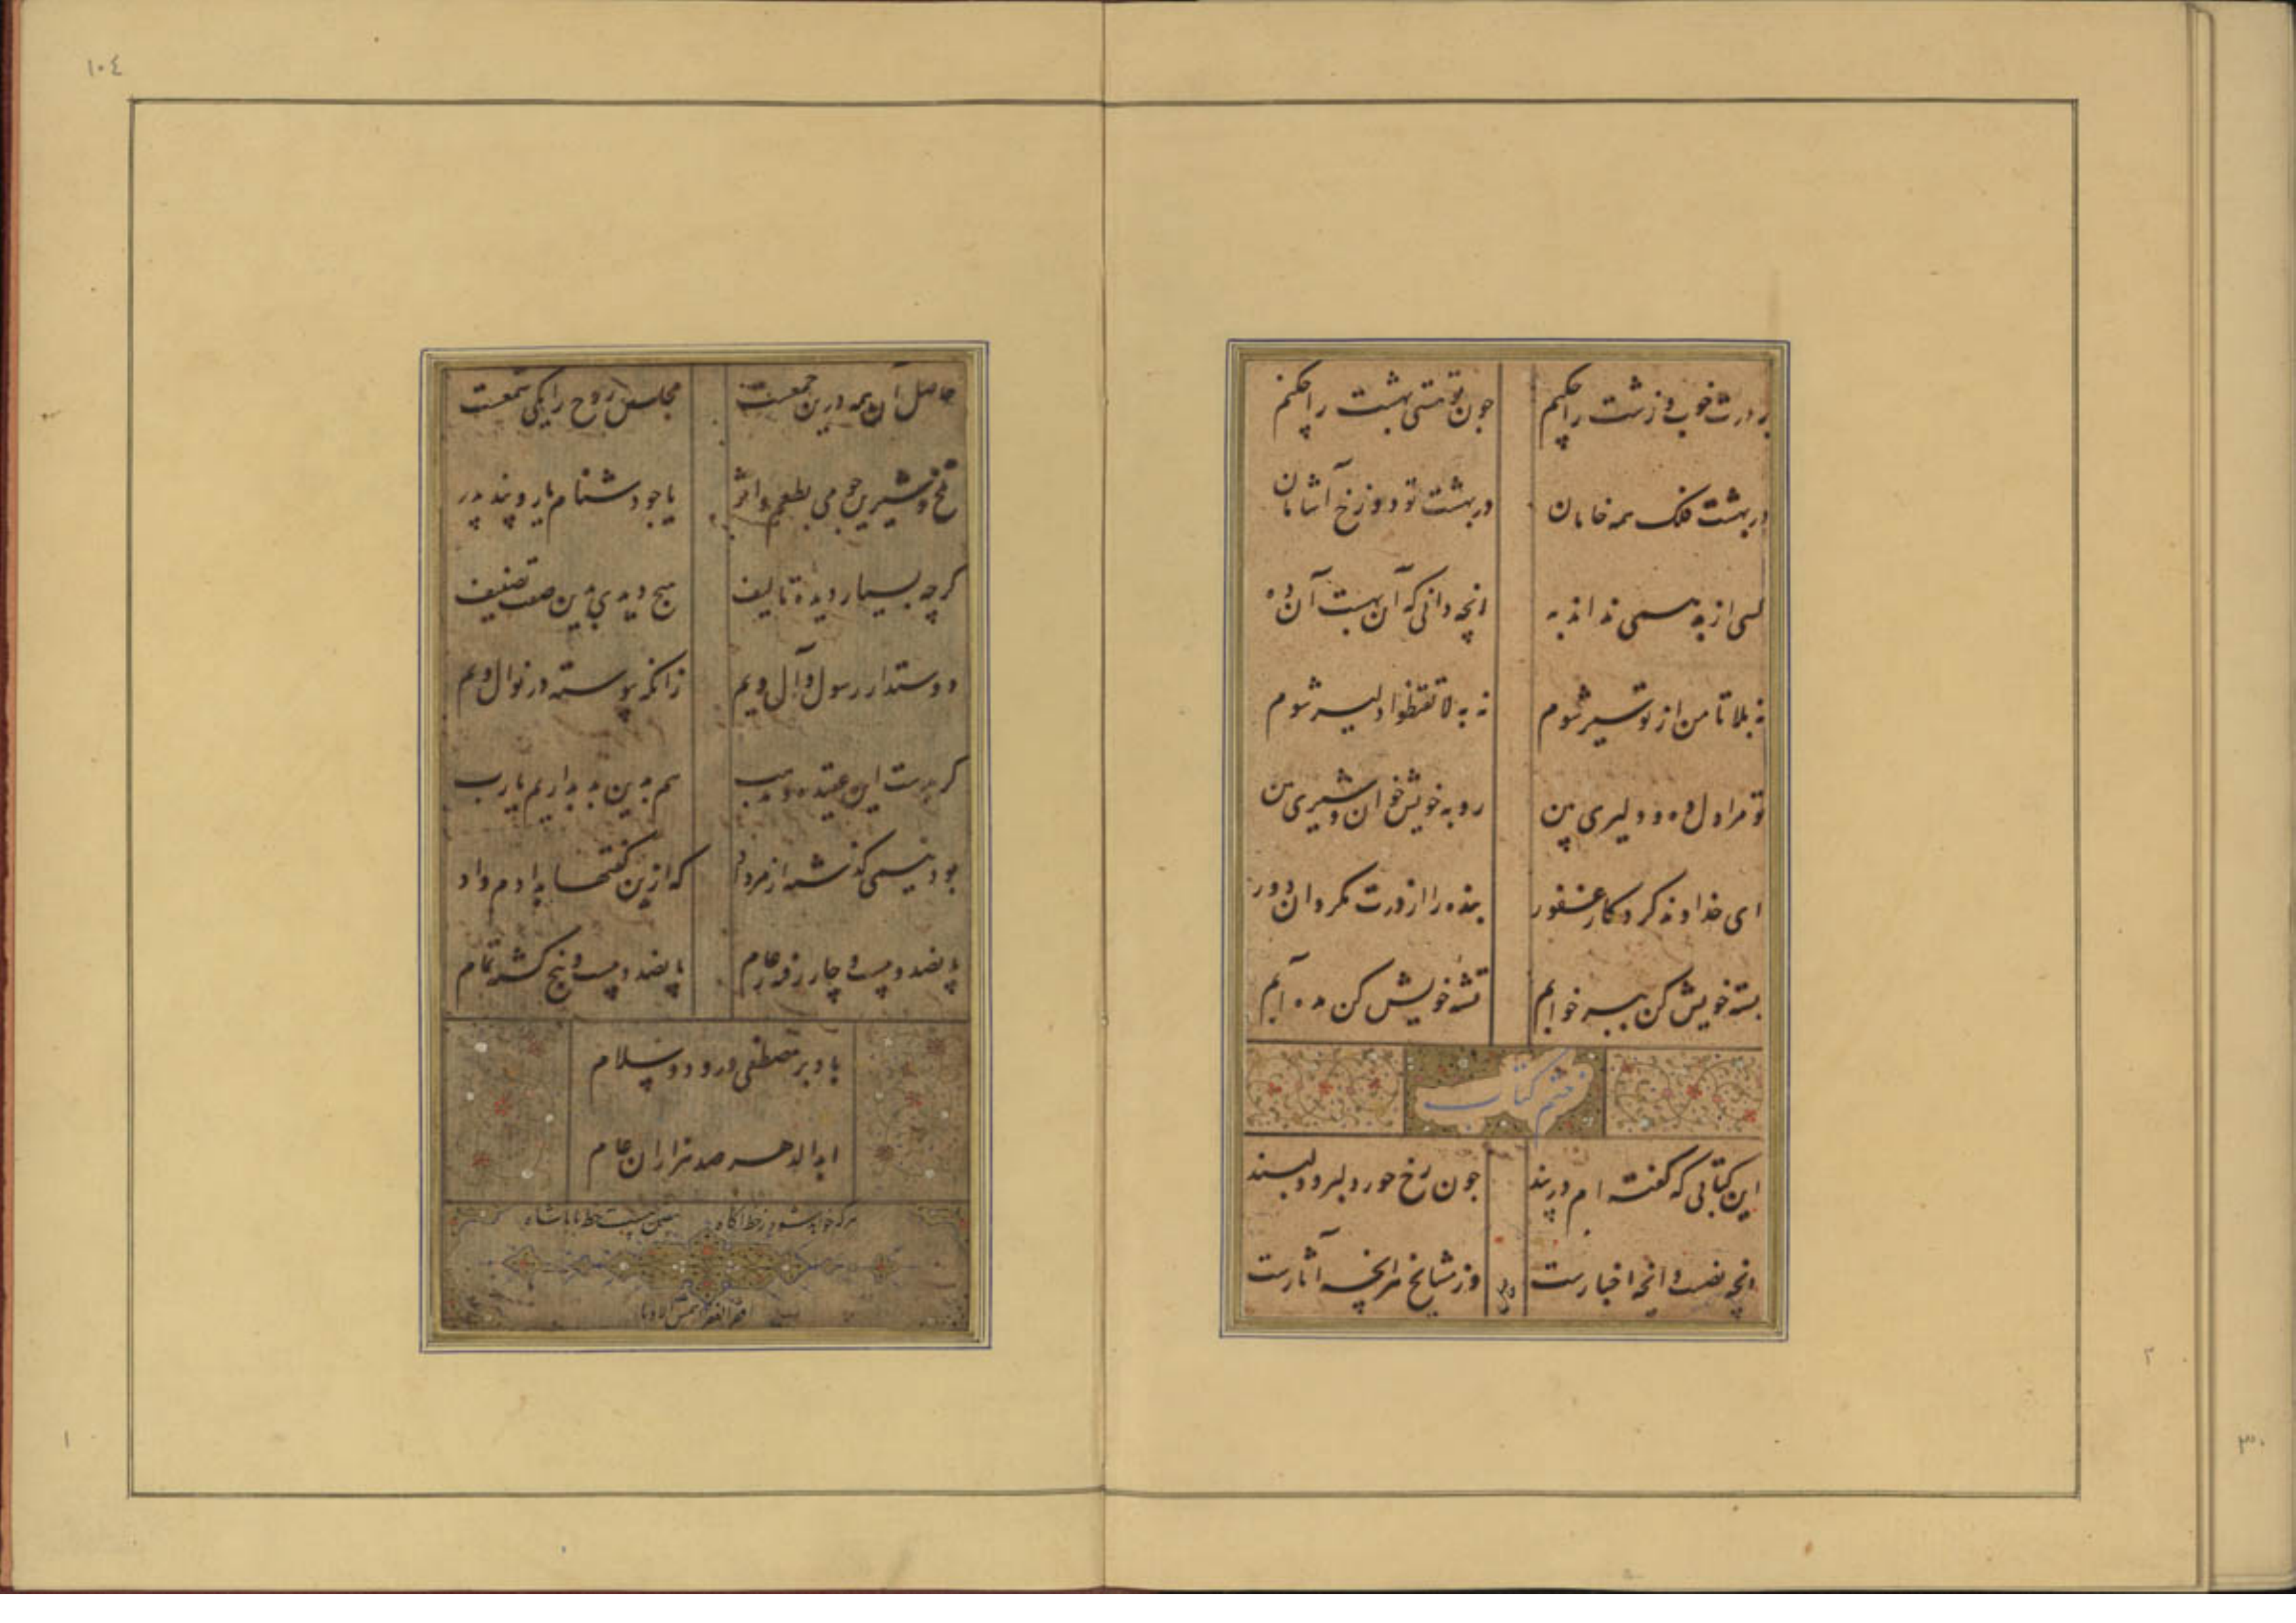 بر درت خوب و زشت را چکنم چون تو هستی بهشت را چکنم
در بهشت فلک همه خامان در بهشت تو دوزخ آشامان
کسی از بد همی نداند به انچه دانی که آن بهست آن ده
نه بلا تا من از تو سیر شوم نه به لا تقنطوا دلیر شوم
تو مرا دل ده و دلیری بین رو به خویش خوان و شیری بین
ای خداوند کردکار غفور بنده را از درت مکردان دور
بسته خویش کن ببر خوابم تشنه خویش کن مده آبم
ختم کتاب
این کتابی که گفته ام در پند چون رخ حور دلبر و دلبند
انچه نصست و انچه اخبارست وز مشایخ هر انچه آثارست
۱۰٤
حاصل آن همه درین جمعست مجلس روح را یکی شمعست
تلخ و شیرین چو می بطعم و اثر یا چو دشنام یار و پند پدر
کرچه بسیار دیده تالیف هیچ دیدی بدین صفت تصنیف
دوستدار رسول و آل ویم زانکه پیوسته در نوال ویم
کر بدست این عقیده و مذهب هم بدین بد بداریم یا رب
بود نیمی کذشته از مرداد که ازین کفتها بدادم داد
پانصد و بیست و چار رفته ز عام پانصد و بیست و پنج کشته تمام
باد بر مصطفی درود و سلام
ابد الدهر صد هزاران عام